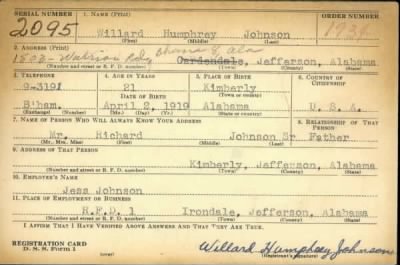 SERIAL NUMBER 1. NAME (Print) ORDER NUMBER
2095 Willard Humphrey Johnson
(First) (Middle) (Last)
2. ADDRESS (Print)
Gardendale, Jefferson, Alabama
(Number and street or R. F. D. number) (Town) (County) (State)
3. TELEPHONE 4. AGE IN YEARS 5. PLACE OF BIRTH 6. COUNTRY OF CITIZENSHIP
9-3191 21 Kimberly
DATE OF BIRTH (Town or county)
B'ham. April 2, 1919 Alabama U. S. A.
(Exchange) (Mo.) (Day) (Yr.) (State or country)
7. NAME OF PERSON WHO WILL ALWAYS KNOW YOUR ADDRESS 8. RELATIONSHIP OF THAT PERSON
Mr. Richard Johnson Sr. Father
(Mr., Mrs., Miss) (First) (Middle) (Last)
9. ADDRESS OF THAT PERSON
Kimberly, Jefferson, Alabama
(Number and street or R. F. D. number) (Town) (County) (State)
10. EMPLOYER'S NAME
Jess Johnson
11. PLACE OF EMPLOYMENT OR BUSINESS
R.F.D. 1 Irondale, Jefferson, Alabama
(Number and street or R. F. D. number) (Town) (County) (State)
I AFFIRM THAT I HAVE VERIFIED ABOVE ANSWERS AND THAT THEY ARE TRUE.
REGISTRATION CARD
D. S. S. Form 1 Willard Humphrey Johnson
(Registrant's signature)